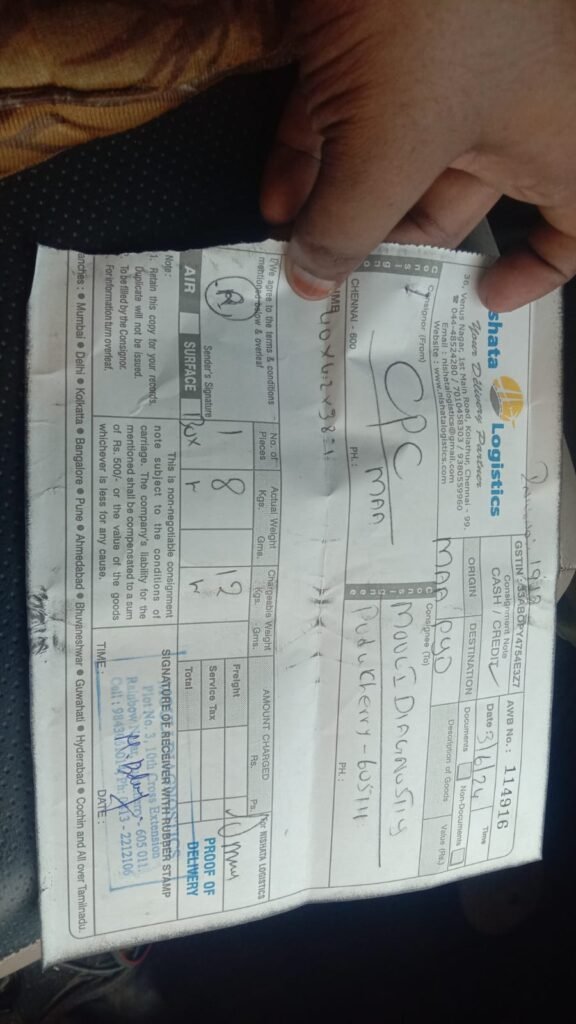 Nishata Logistics
Your Delivery Partner
36, Venus Nagar, 1st Main Road, Kolathur, Chennai - 99.
☎ 044-48524280 / 7010458303 / 9380559960
Email : nishatalogistics@gmail.com
Website : www.nishatalogistics.com
GSTIN : 33ABOPY4754E3Z7
Consignment Note
CASH / CREDIT
AWB No.: 114916
ORIGIN
DESTINATION
Date 3/6/24
Time
MAA
PYD
Documents
Non-Documents
Description of Goods
Value (Rs.)
Consignor (From)
CPC
MAA
CHENNAI - 600
PH. :
Consignee (To)
Puducherry - 605111
PH. :
We agree to the terms & conditions
mentioned below & overleaf
Sender's Signature
No. of Pieces
Actual Weight
Kgs. Gms.
Chargeable Weight
Kgs. Gms.
AMOUNT CHARGED
Rs. Ps.
For NISHATA LOGISTICS
R
1
Box
8
12
Freight
Service Tax
Total
PROOF OF
DELIVERY
AIR
SURFACE
Note:
1. Retain this copy for your records.
Duplicate will not be issued.
To be filled by the Consignor.
For information turn overleaf.
This is non-negotiable consignment
note subject to the conditions of
carriage. The company's liability for the
mentioned shall be compensated to a sum
of Rs. 500/- or the value of the goods
whichever is less for any cause.
SIGNATURE OF RECEIVER WITH RUBBER STAMP
Plot No. 3, 10th Cross Extension,
TIME :
DATE :
anches : ● Mumbai ● Delhi ● Kolkatta ● Bangalore ● Pune ● Ahmedabad ● Bhuvaneshwar ● Guwahati ● Hyderabad ● Cochin and All over Tamilnadu.